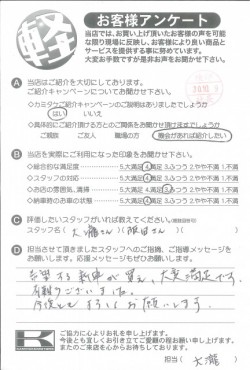 軽
お客様アンケート
当店では、お客様から頂いたお客様の声を可能
な限り現場に反映し、お客様により良い商品と
サービスを提供する事に努めています。
大変お手数ですが是非お声をお聞かせ下さい。
A 当店はご紹介を大切にしております。
ご紹介キャンペーンについてお聞かせ下さい。
◇カミタケご紹介キャンペーンのご説明はありましたでしょうか
はい いいえ
ご親戚 ご友人 職場の方 機会があれば紹介したい
B 当店を実際にご利用になった印象をお聞かせ下さい。
◇総合的な満足度 5.大満足 4.満足 3.ふつう 2.やや不満 1.不満
◇スタッフの対応 5.大満足 4.満足 3.ふつう 2.やや不満 1.不満
◇お店の雰囲気、清掃 5.大満足 4.満足 3.ふつう 2.やや不満 1.不満
◇納車時のお車の状態 5.大満足 4.満足 3.ふつう 2.やや不満 1.不満
C 評価したいスタッフがいれば教えてください。
スタッフ名( 大瀧さん )( 阪田さん )
D 担当させて頂きましたスタッフへのご指摘、ご指導メッセージを
お願いします。応援メッセージもぜひお願いします。
希望する新車が買え、大変満足です。
有難うございました。
今後ともよろしくお願いします。
K
ご協力に心よりお礼を申し上げます。
今後とも宜しくお引き立てご愛顧の程お願い申し上げます。
またのご来店を心からお待ちしております。
担当( 大瀧 )